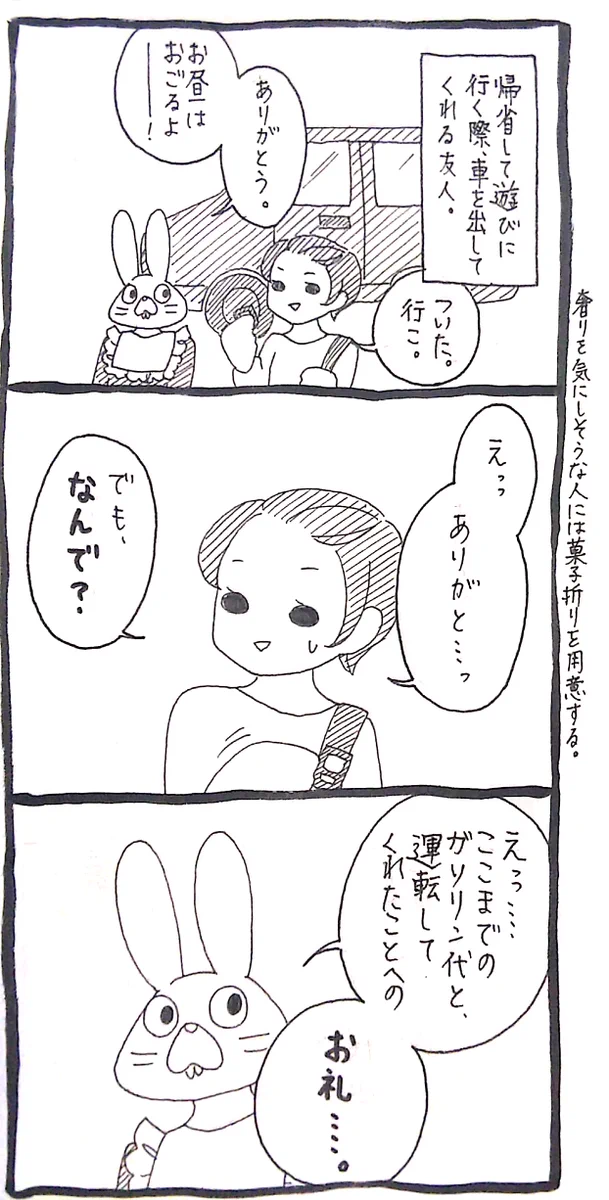 帰省して遊びに
行く際、車を出して
くれる友人。
ついた。
行こ。
ありがとう。
お昼は
おごるよ
ーー!
えっっ
ありがと…っ
でも、
なんで?
えっ……
ここまでの
ガソリン代と、
運転して
くれたことへの
お礼……。
奢りを気にしそうな人には菓子折りを用意する。